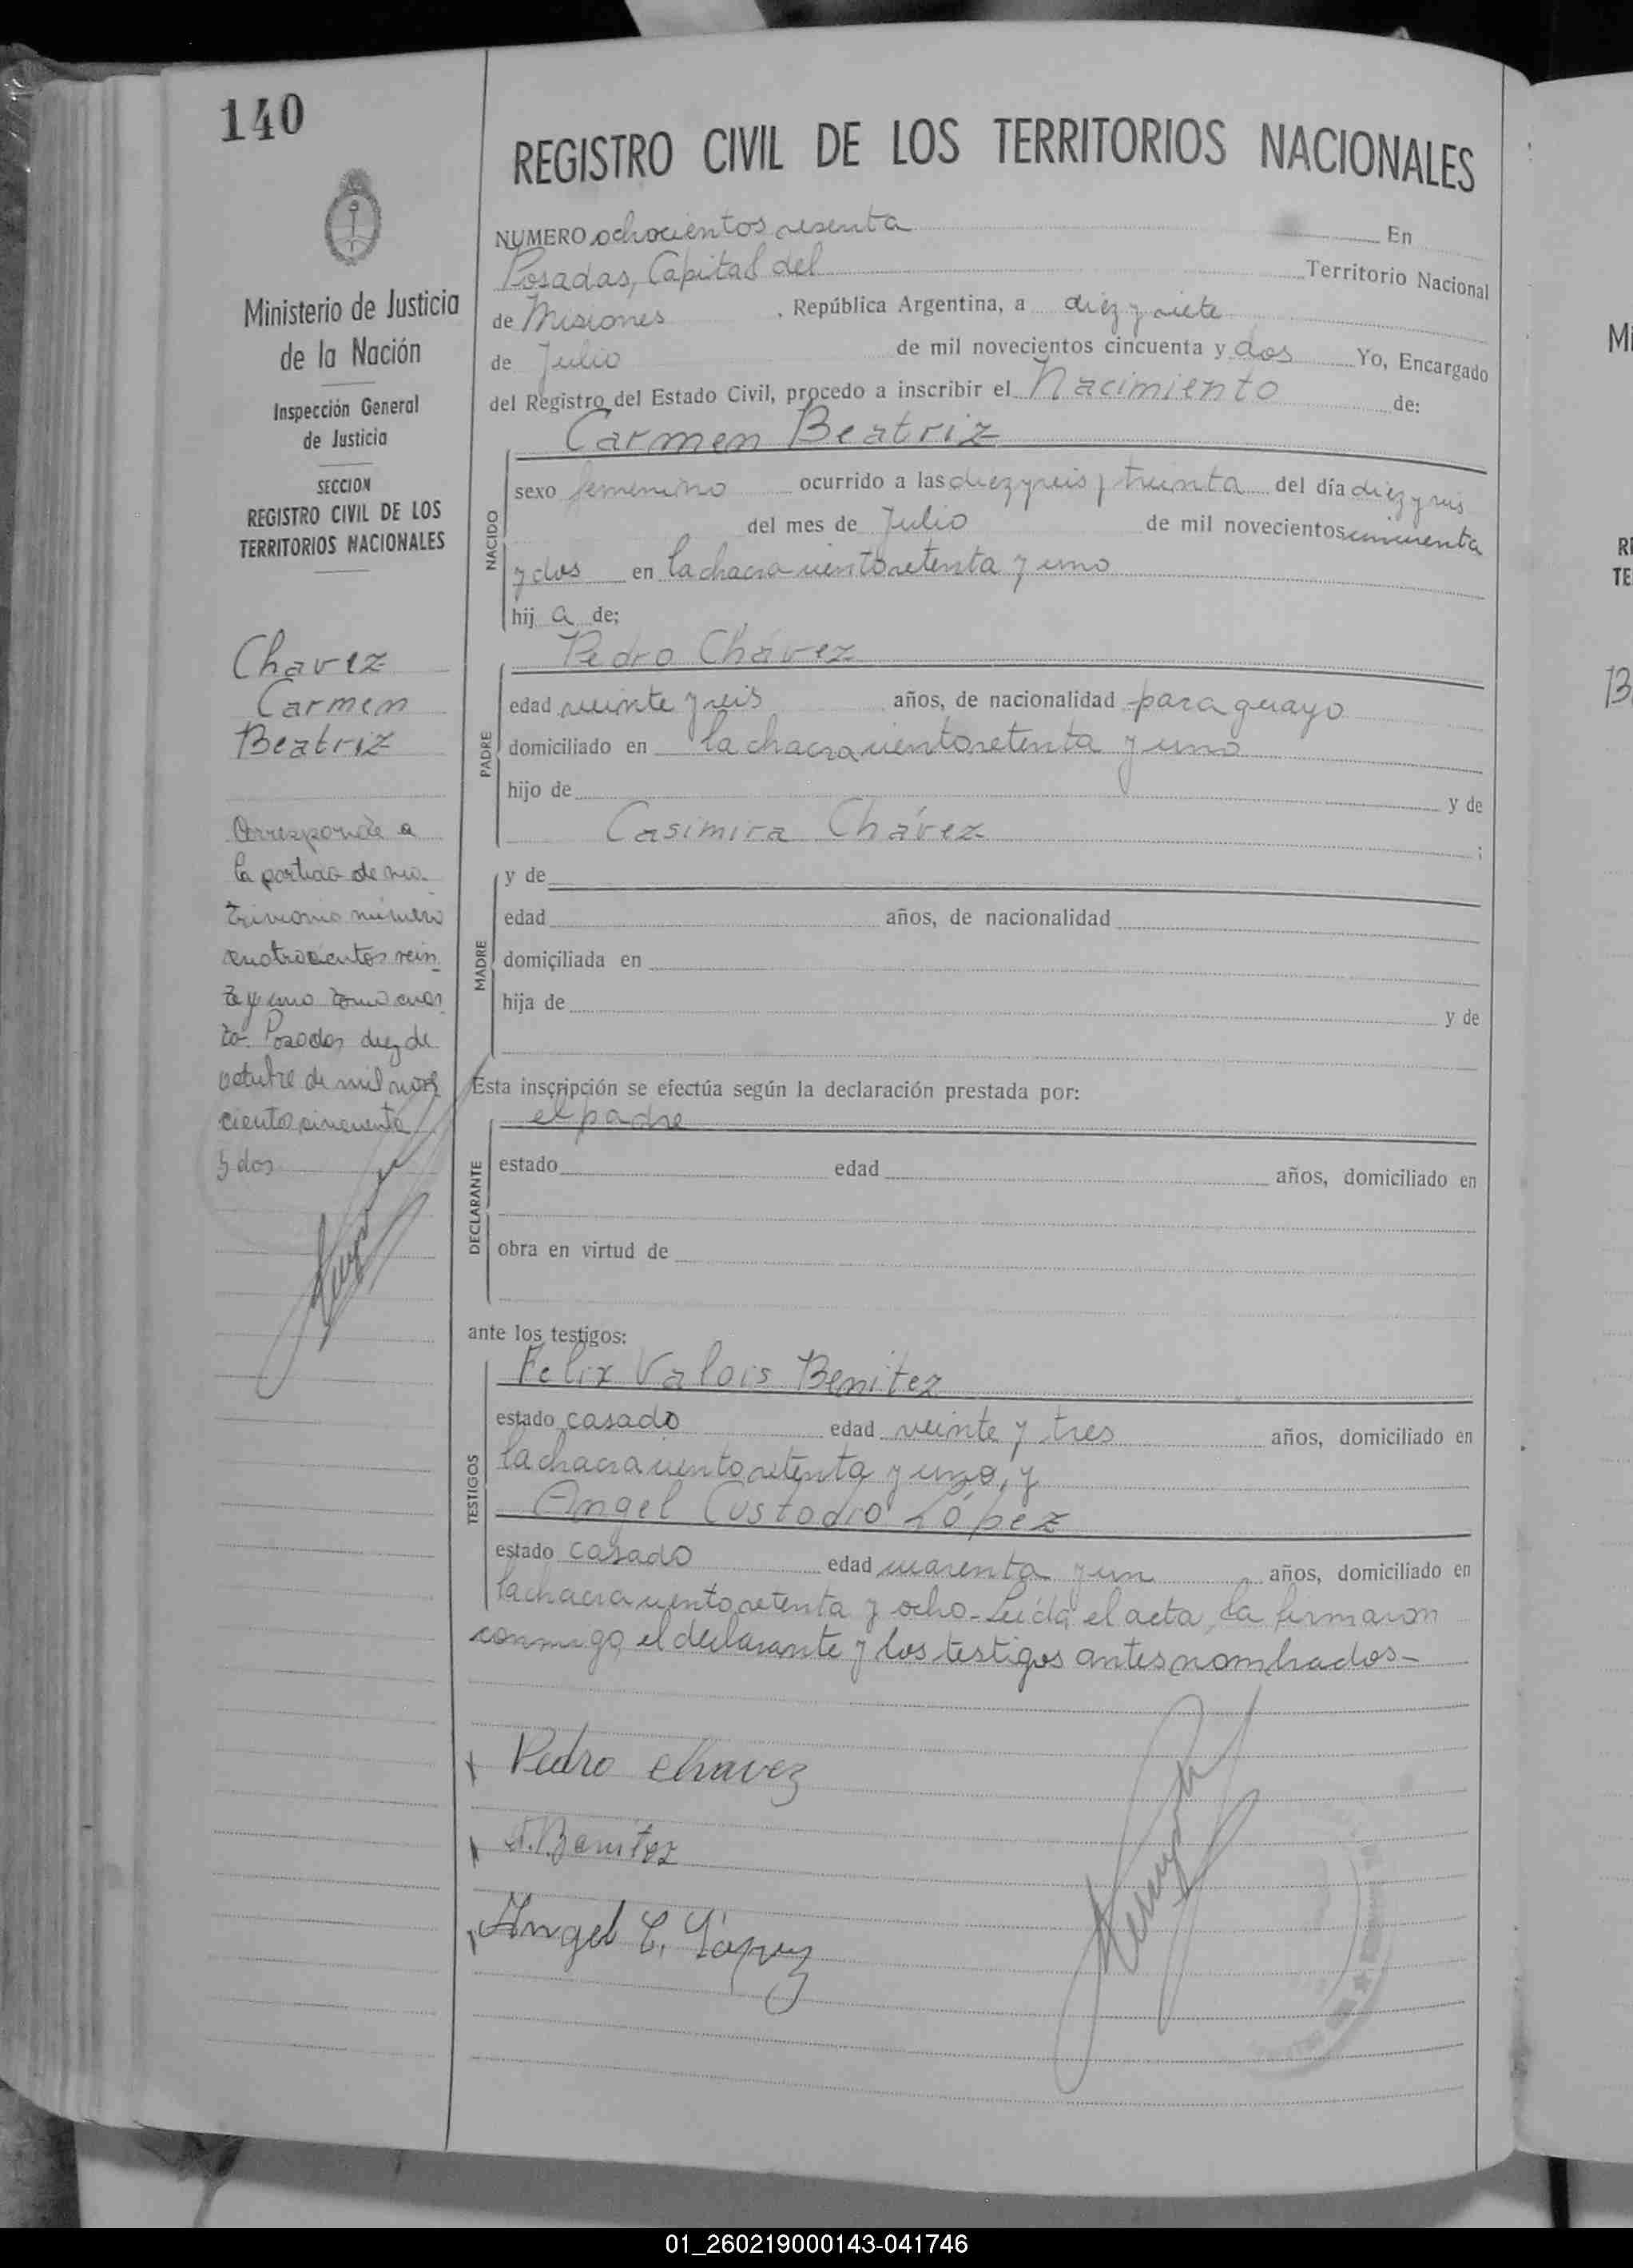 140
Ministerio de Justicia
de la Nación
Inspección General
de Justicia
SECCION
REGISTRO CIVIL DE LOS
TERRITORIOS NACIONALES
Chavez
Carmen
Beatriz
Corresponde a
la partida de ma-
trimonio número
cuatrocientos vein-
te y uno tomo cuar-
to. Posadas diez de
octubre de mil nove
cientos cincuenta
y dos
REGISTRO CIVIL DE LOS TERRITORIOS NACIONALES
NUMERO ochocientos sesenta En
Posadas, Capital del Territorio Nacional
de Misiones, República Argentina, a diez y siete
de Julio de mil novecientos cincuenta y dos Yo, Encargado
del Registro del Estado Civil, procedo a inscribir el Nacimiento de:
Carmen Beatriz
NACIDO
sexo femenino ocurrido a las diez y seis y treinta del día diez y seis
del mes de Julio de mil novecientos cincuenta
y dos en la chacra ciento setenta y uno
hij a de;
Pedro Chávez
PADRE
edad veinte y seis años, de nacionalidad paraguayo
domiciliado en la chacra ciento setenta y uno
hijo de y de
Casimira Chávez ;
MADRE
y de
edad años, de nacionalidad
domiciliada en
hija de y de
Esta inscripción se efectúa según la declaración prestada por:
el padre
DECLARANTE
estado edad años, domiciliado en
obra en virtud de
ante los testigos:
Felix Valois Benitez
TESTIGOS
estado casado edad veinte y tres años, domiciliado en
la chacra ciento setenta y uno, y
Angel Custodio López
estado casado edad cuarenta y un años, domiciliado en
la chacra ciento setenta y ocho - Leída el acta, la firmaron
conmigo, el declarante y los testigos antes nombrados -
Pedro Chavez
F. Benitez
Angel C. López
RE
TE
01_260219000143-041746